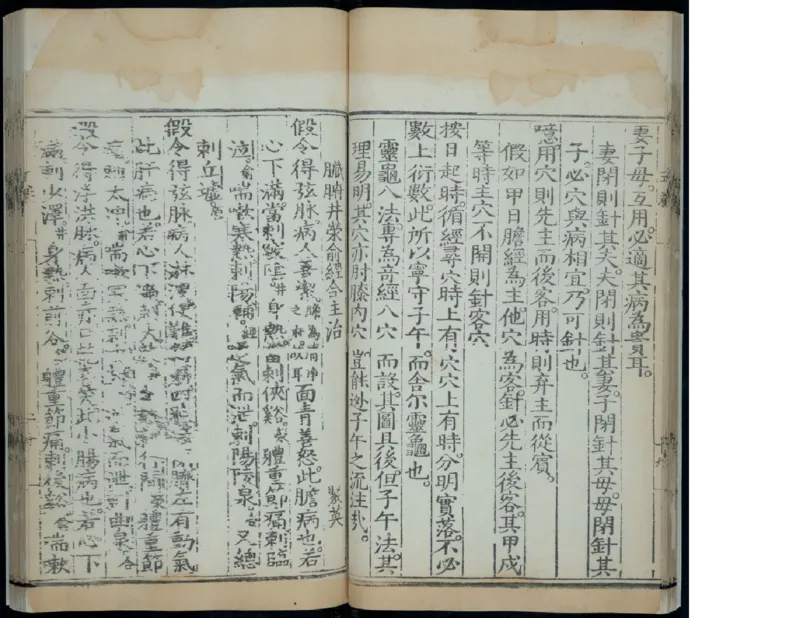 妻子母。互用。必適其病為貴耳。
妻閉則針其夫。夫閉則針其妻。子閉針其母。母閉針其
子。必穴與病相宜。乃可針也。
噫。用穴則先主而後客。用時則弃主而從賓。
假如甲日膽經為主。他穴為客。針必先主後客。其甲戌
等時主穴不開則針客穴
按日起時。循經尋穴。時上有穴。穴上有時。分明實落。不必
數上衍數。此所以寧守子午。而舍尔靈龜也。
靈龜八法。專為奇經八穴而設。其圖具後。但子午法。其
理易明。其穴亦肘膝內穴。豈能逃子午之流注哉。
臟腑井榮俞經合主治 聚英
假令得弦脉。病人善潔。面青善怒。此膽病也。若
心下滿。當刺竅陰。井身熱。當刺俠谿。體重節痛。刺臨
泣。俞喘嗽寒熱。刺陽輔。經逆氣而泄。刺陽陵泉。合又總
刺丘墟。
假令得弦脉。病人 臍左有動氣
此肝病也。若心下滿。刺大敦。井 體重節
刺太冲。俞喘嗽 曲泉。合
假令得浮洪脉。病人面赤口 此小腸病也。若心下
滿。刺少澤。井身熱。刺前谷。體重節痛。刺後谿。俞喘嗽